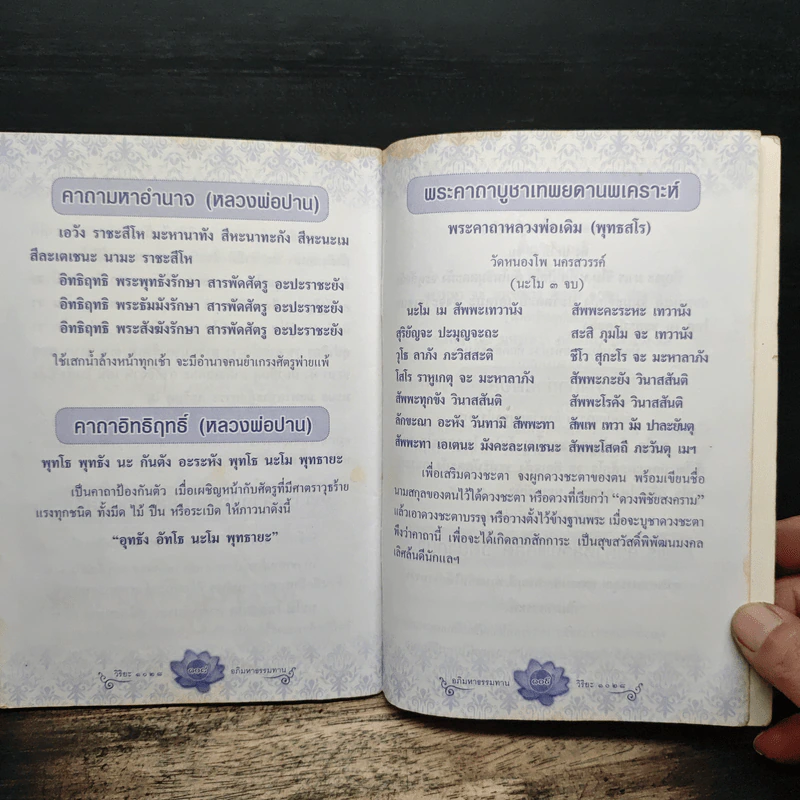 คาถามหาอำนาจ (หลวงพ่อปาน)
เอวัง ราชะสีโห มะหานาทัง สีหะนาทะกัง สีหะนะเม
สีละเตเชนะ นามะ ราชะสีโห
อิทธิฤทธิ พระพุทธังรักษา สารพัดศัตรู อะปะราชะยัง
อิทธิฤทธิ พระธัมมังรักษา สารพัดศัตรู อะปะราชะยัง
อิทธิฤทธิ พระสังฆังรักษา สารพัดศัตรู อะปะราชะยัง
ใช้เสกน้ำล้างหน้าทุกเช้า จะมีอำนาจคนยำเกรงศัตรูพ่ายแพ้
คาถาอิทธิฤทธิ์ (หลวงพ่อปาน)
พุทโธ พุทธัง นะ กันตัง อะระหัง พุทโธ นะโม พุทธายะ
เป็นคาถาป้องกันตัว เมื่อเผชิญหน้ากับศัตรูที่มีศาตราวุธร้าย
แรงทุกชนิด ทั้งมีด ไม้ ปืน หรือระเบิด ให้ภาวนาดังนี้
“อุทธัง อัทโธ นะโม พุทธายะ”
วิริยะ ๑๐๒๘ ๑๑๔ อภิมหาธรรมทาน
พระคาถาบูชาเทพยดานพเคราะห์
พระคาถาหลวงพ่อเดิม (พุทธสโร)
วัดหนองโพ นครสวรรค์
(นะโม ๓ จบ)
นะโม เม สัพพะเทวานัง สัพพะคะระหะ เทวานัง
สุริยัญจะ ปะมุญจะถะ สะสิ ภุมโม จะ เทวานัง
วุโธ ลาภัง ภะวิสสะติ ชีโว สุกะโร จะ มะหาลาภัง
โสโร ราหูเกตุ จะ มะหาลาภัง สัพพะภะยัง วินาสสันติ
สัพพะทุกขัง วินาสสันติ สัพพะโรคัง วินาสสันติ
ลักขะณา อะหัง วันทามิ สัพพะทา สัพเพ เทวา มัง ปาละยันตุ
สัพพะทา เอเตนะ มังคะละเตเชนะ สัพพะโสตถี ภะวันตุ เมฯ
เพื่อเสริมดวงชะตา จงผูกดวงชะตาของตน พร้อมเขียนชื่อ
นามสกุลของตนไว้ใต้ดวงชะตา หรือดวงที่เรียกว่า “ดวงพิชัยสงคราม”
แล้วเอาดวงชะตาบรรจุ หรือวางตั้งไว้ข้างฐานพระ เมื่อจะบูชาดวงชะตา
พึงว่าคาถานี้ เพื่อจะได้เกิดลาภสักการะ เป็นสุขสวัสดิ์พิพัฒนมงคล
เลิศล้นดีนักแลฯ
อภิมหาธรรมทาน ๑๑๕ วิริยะ ๑๐๒๘